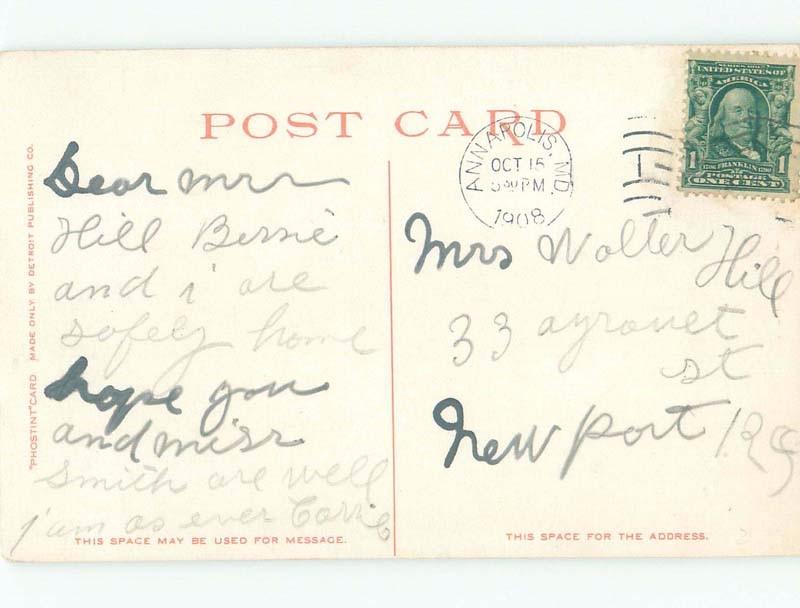 POST CARD
"PHOSTINT" CARD MADE ONLY BY DETROIT PUBLISHING CO.
Dear Mrs
Hill Bessie
and i are
safely home
hope you
and miss
Smith are well
i am as ever Carrie
THIS SPACE MAY BE USED FOR MESSAGE.
ANNAPOLIS, MD.
OCT 15
PM
1908
SERIES 1902
UNITED STATES OF
AMERICA
1 FRANKLIN 1
POSTAGE
ONE CENT
Mrs Walter Hill
33
st
New port R I
THIS SPACE FOR THE ADDRESS.